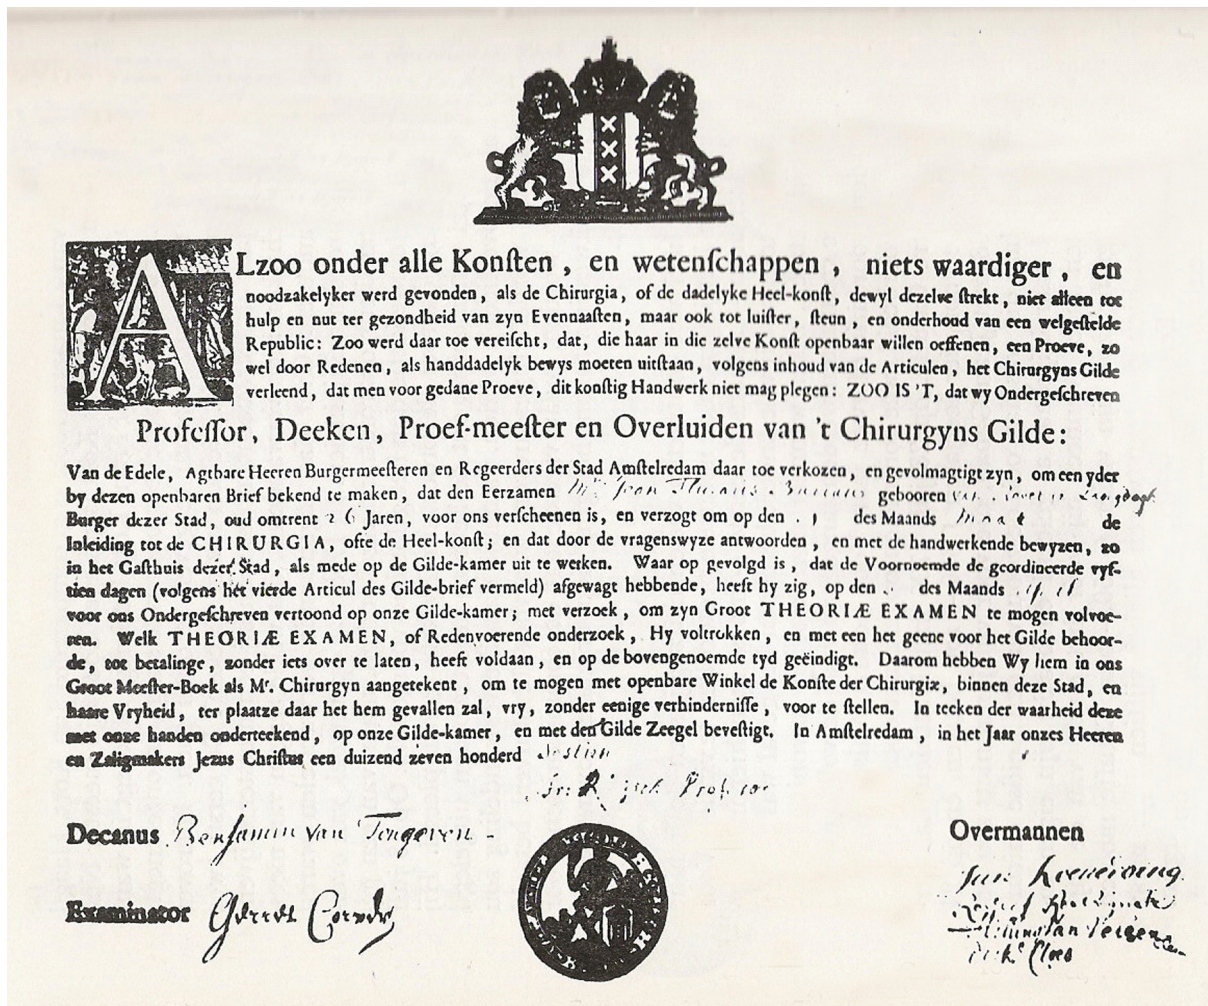 ALzoo onder alle Konſten, en wetenſchappen, niets waardiger, en
noodzakelyker werd gevonden, als de Chirurgia, of de dadelyke Heel-konſt, dewyl dezelve ſtrekt, niet alleen tot
hulp en nut ter gezondheid van zyn Evennaaſten, maar ook tot luiſter, ſteun, en onderhoud van een welgeſtelde
Republic: Zoo werd daar toe vereiſcht, dat, die haar in die zelve Konſt openbaar willen oeffenen, een Proeve, zo
wel door Redenen, als handdadelyk bewys moeten uitſtaan, volgens inhoud van de Articulen, het Chirurgyns Gilde
verleend, dat men voor gedane Proeve, dit konſtig Handwerk niet mag plegen: ZOO IS 'T, dat wy Ondergeſchreven
Profeſſor, Deeken, Proef-meeſter en Overluiden van 't Chirurgyns Gilde:
Van de Edele, Agtbare Heeren Burgermeeſteren en Regeerders der Stad Amſtelredam daar toe verkozen, en gevolmagtigt zyn, om een yder
by dezen openbaren Brief bekend te maken, dat den Eerzamen Jean gebooren
Burger dezer Stad, oud omtrent 26 Jaren, voor ons verſcheenen is, en verzogt om op den des Maands de
Inleiding tot de CHIRURGIA, ofte de Heel-konſt; en dat door de vragenswyze antwoorden, en met de handwerkende bewyzen, zo
in het Gaſthuis dezer Stad, als mede op de Gilde-kamer uit te werken. Waar op gevolgd is, dat de Voornoemde de geordineerde vyf-
tien dagen (volgens het vierde Articul des Gilde-brief vermeld) afgewagt hebbende, heeft hy zig, op den des Maands
voor ons Ondergeſchreven vertoond op onze Gilde-kamer; met verzoek, om zyn Groot THEORIÆ EXAMEN te mogen volvoe-
ren. Welk THEORIÆ EXAMEN, of Redenvoerende onderzoek, Hy voltrokken, en met een het geene voor het Gilde behoor-
de, tot betalinge, zonder iets over te laten, heeft voldaan, en op de bovengenoemde tyd geëindigt. Daarom hebben Wy hem in ons
Groot Meeſter-Boek als Mr. Chirurgyn aangetekent, om te mogen met openbare Winkel de Konſte der Chirurgiæ, binnen deze Stad, en
haare Vryheid, ter plaatze daar het hem gevallen zal, vry, zonder eenige verhinderniſſe, voor te ſtellen. In teeken der waarheid deze
met onze handen onderteekend, op onze Gilde-kamer, en met den Gilde Zeegel beveſtigt. In Amſtelredam, in het Jaar onzes Heeren
en Zaligmakers Jezus Chriſtus een duizend zeven honderd
Decanus Benjamin van Tongeren
Overmannen
Examinator Gerret